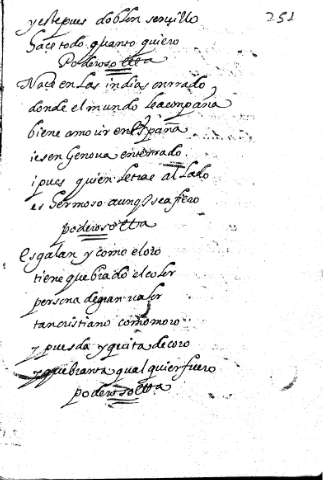 251
y este pues doblon sencillo
hace todo quanto quiero
Poderoso etta
Nace en las indias onrrado
donde el mundo le aconpaña
biene a morir en españa
i es en Genova enterrado
i pues quien le trae al lado
es hermoso aunq sea fiero
poderoso etta
Es galan y como el oro
tiene quebrado el color
persona de gran valor
tan cristiano como moro
y pues da y quita decoro
y quebranta qual quier fuero
poderoso etta